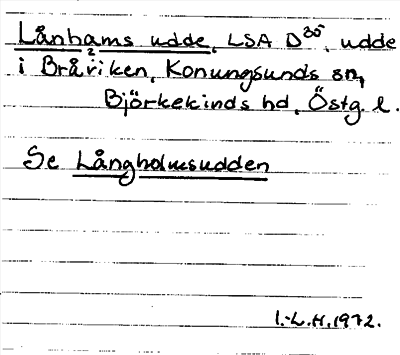 Lånhams udde, LSA D35, udde
i Bråviken, Konungsunds sn,
Björkekinds hd, Östg. l.
Se Långholmsudden
I.-L.H. 1972.